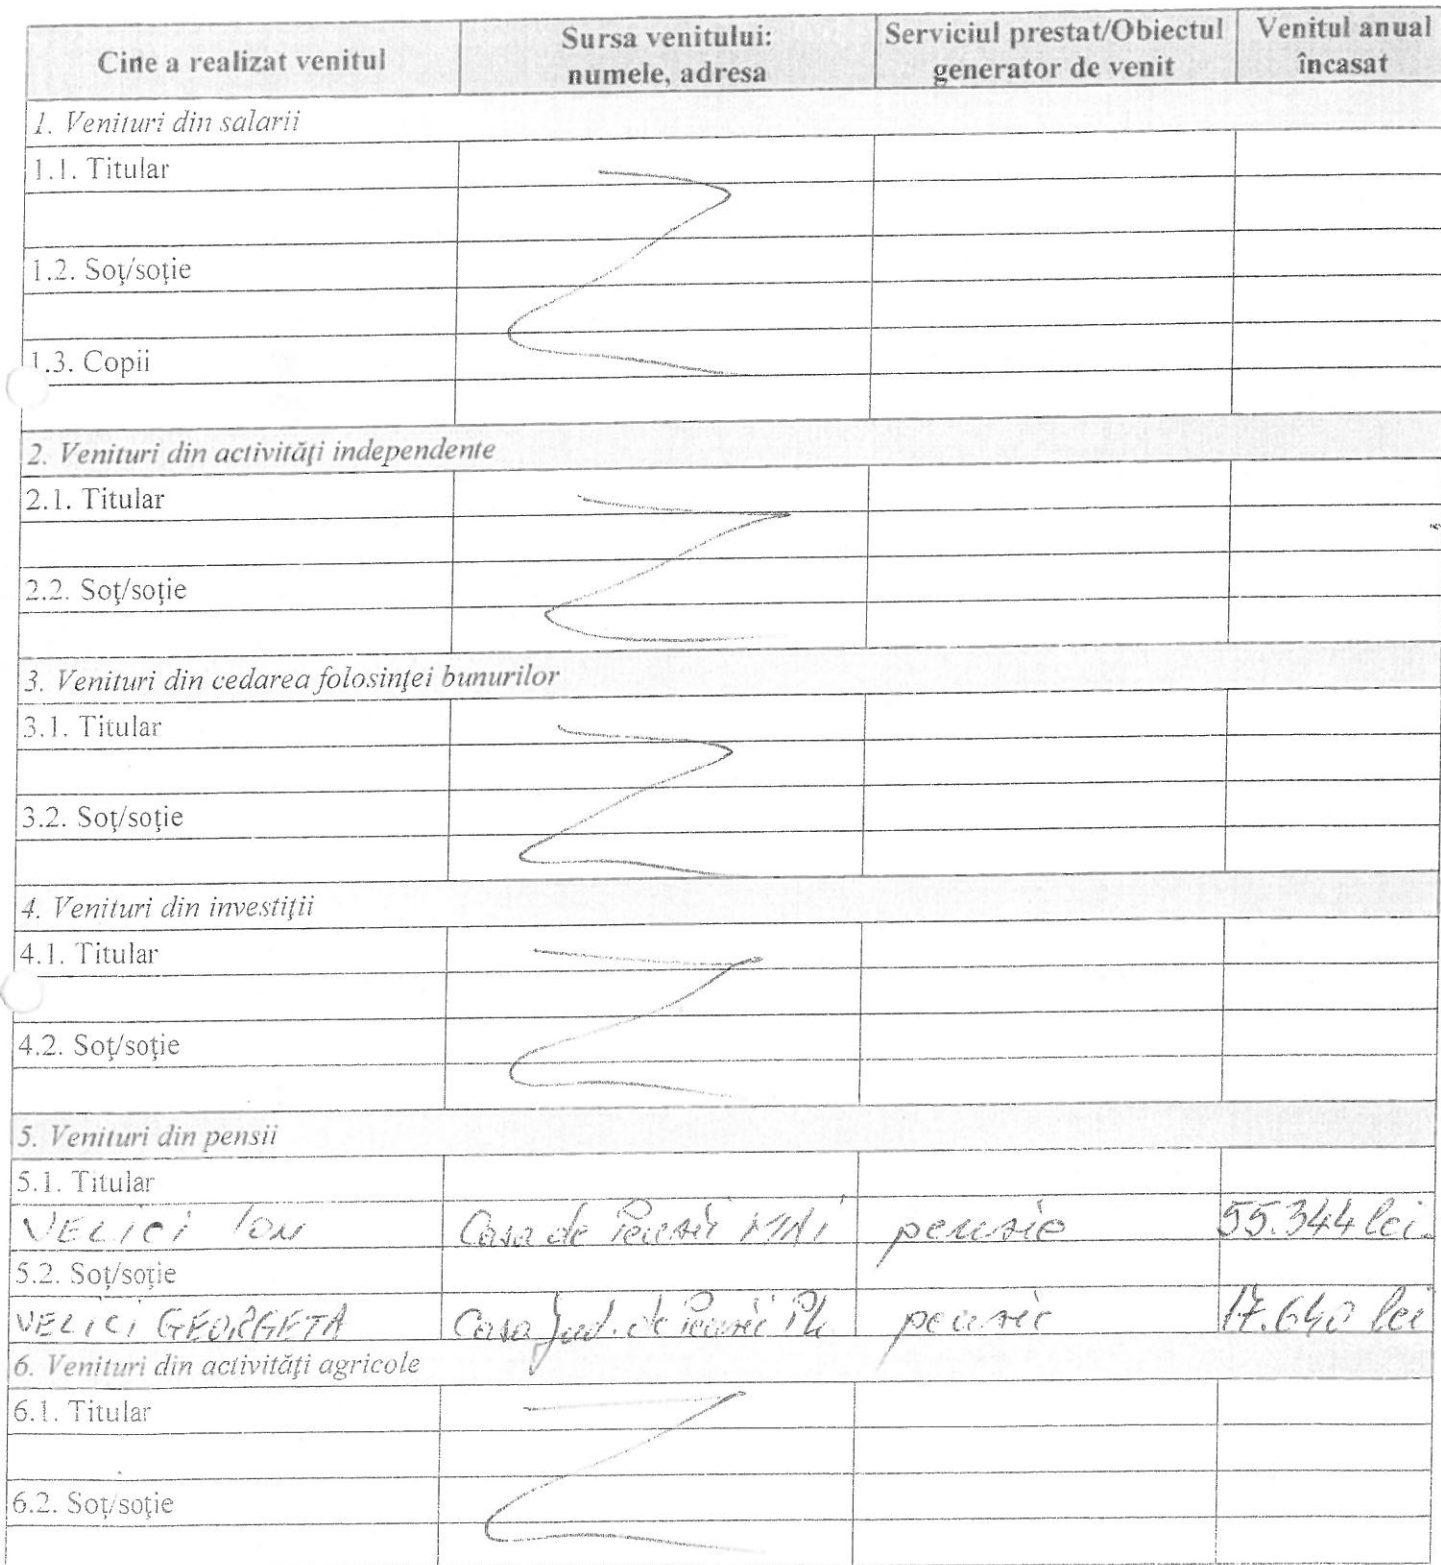 Cine a realizat venitul
Sursa venitului:
numele, adresa
Serviciul prestat/Obiectul
generator de venit
Venitul anual
încasat
1. Venituri din salarii
1.1. Titular
1.2. Soţ/soţie
1.3. Copii
2. Venituri din activităţi independente
2.1. Titular
2.2. Soţ/soţie
3. Venituri din cedarea folosinţei bunurilor
3.1. Titular
3.2. Soţ/soţie
4. Venituri din investiţii
4.1. Titular
4.2. Soţ/soţie
5. Venituri din pensii
5.1. Titular
VELICI ION Casa de Pensii MAI pensie 55.344 lei
5.2. Soţ/soţie
VELICI GEORGETA Casa Jud. de Pensii Ph pensie 17.640 lei
6. Venituri din activităţi agricole
6.1. Titular
6.2. Soţ/soţie